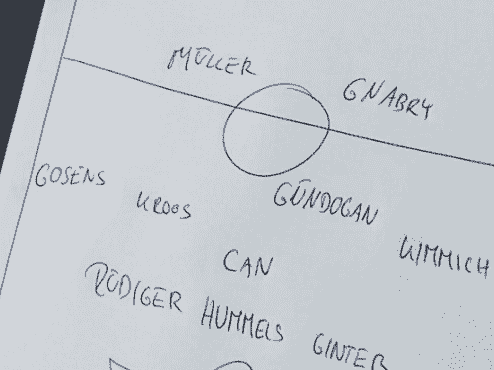 MÜLLER
GNABRY
GOSENS
KROOS
GÜNDOGAN
KIMMICH
CAN
RÜDIGER HUMMELS GINTER